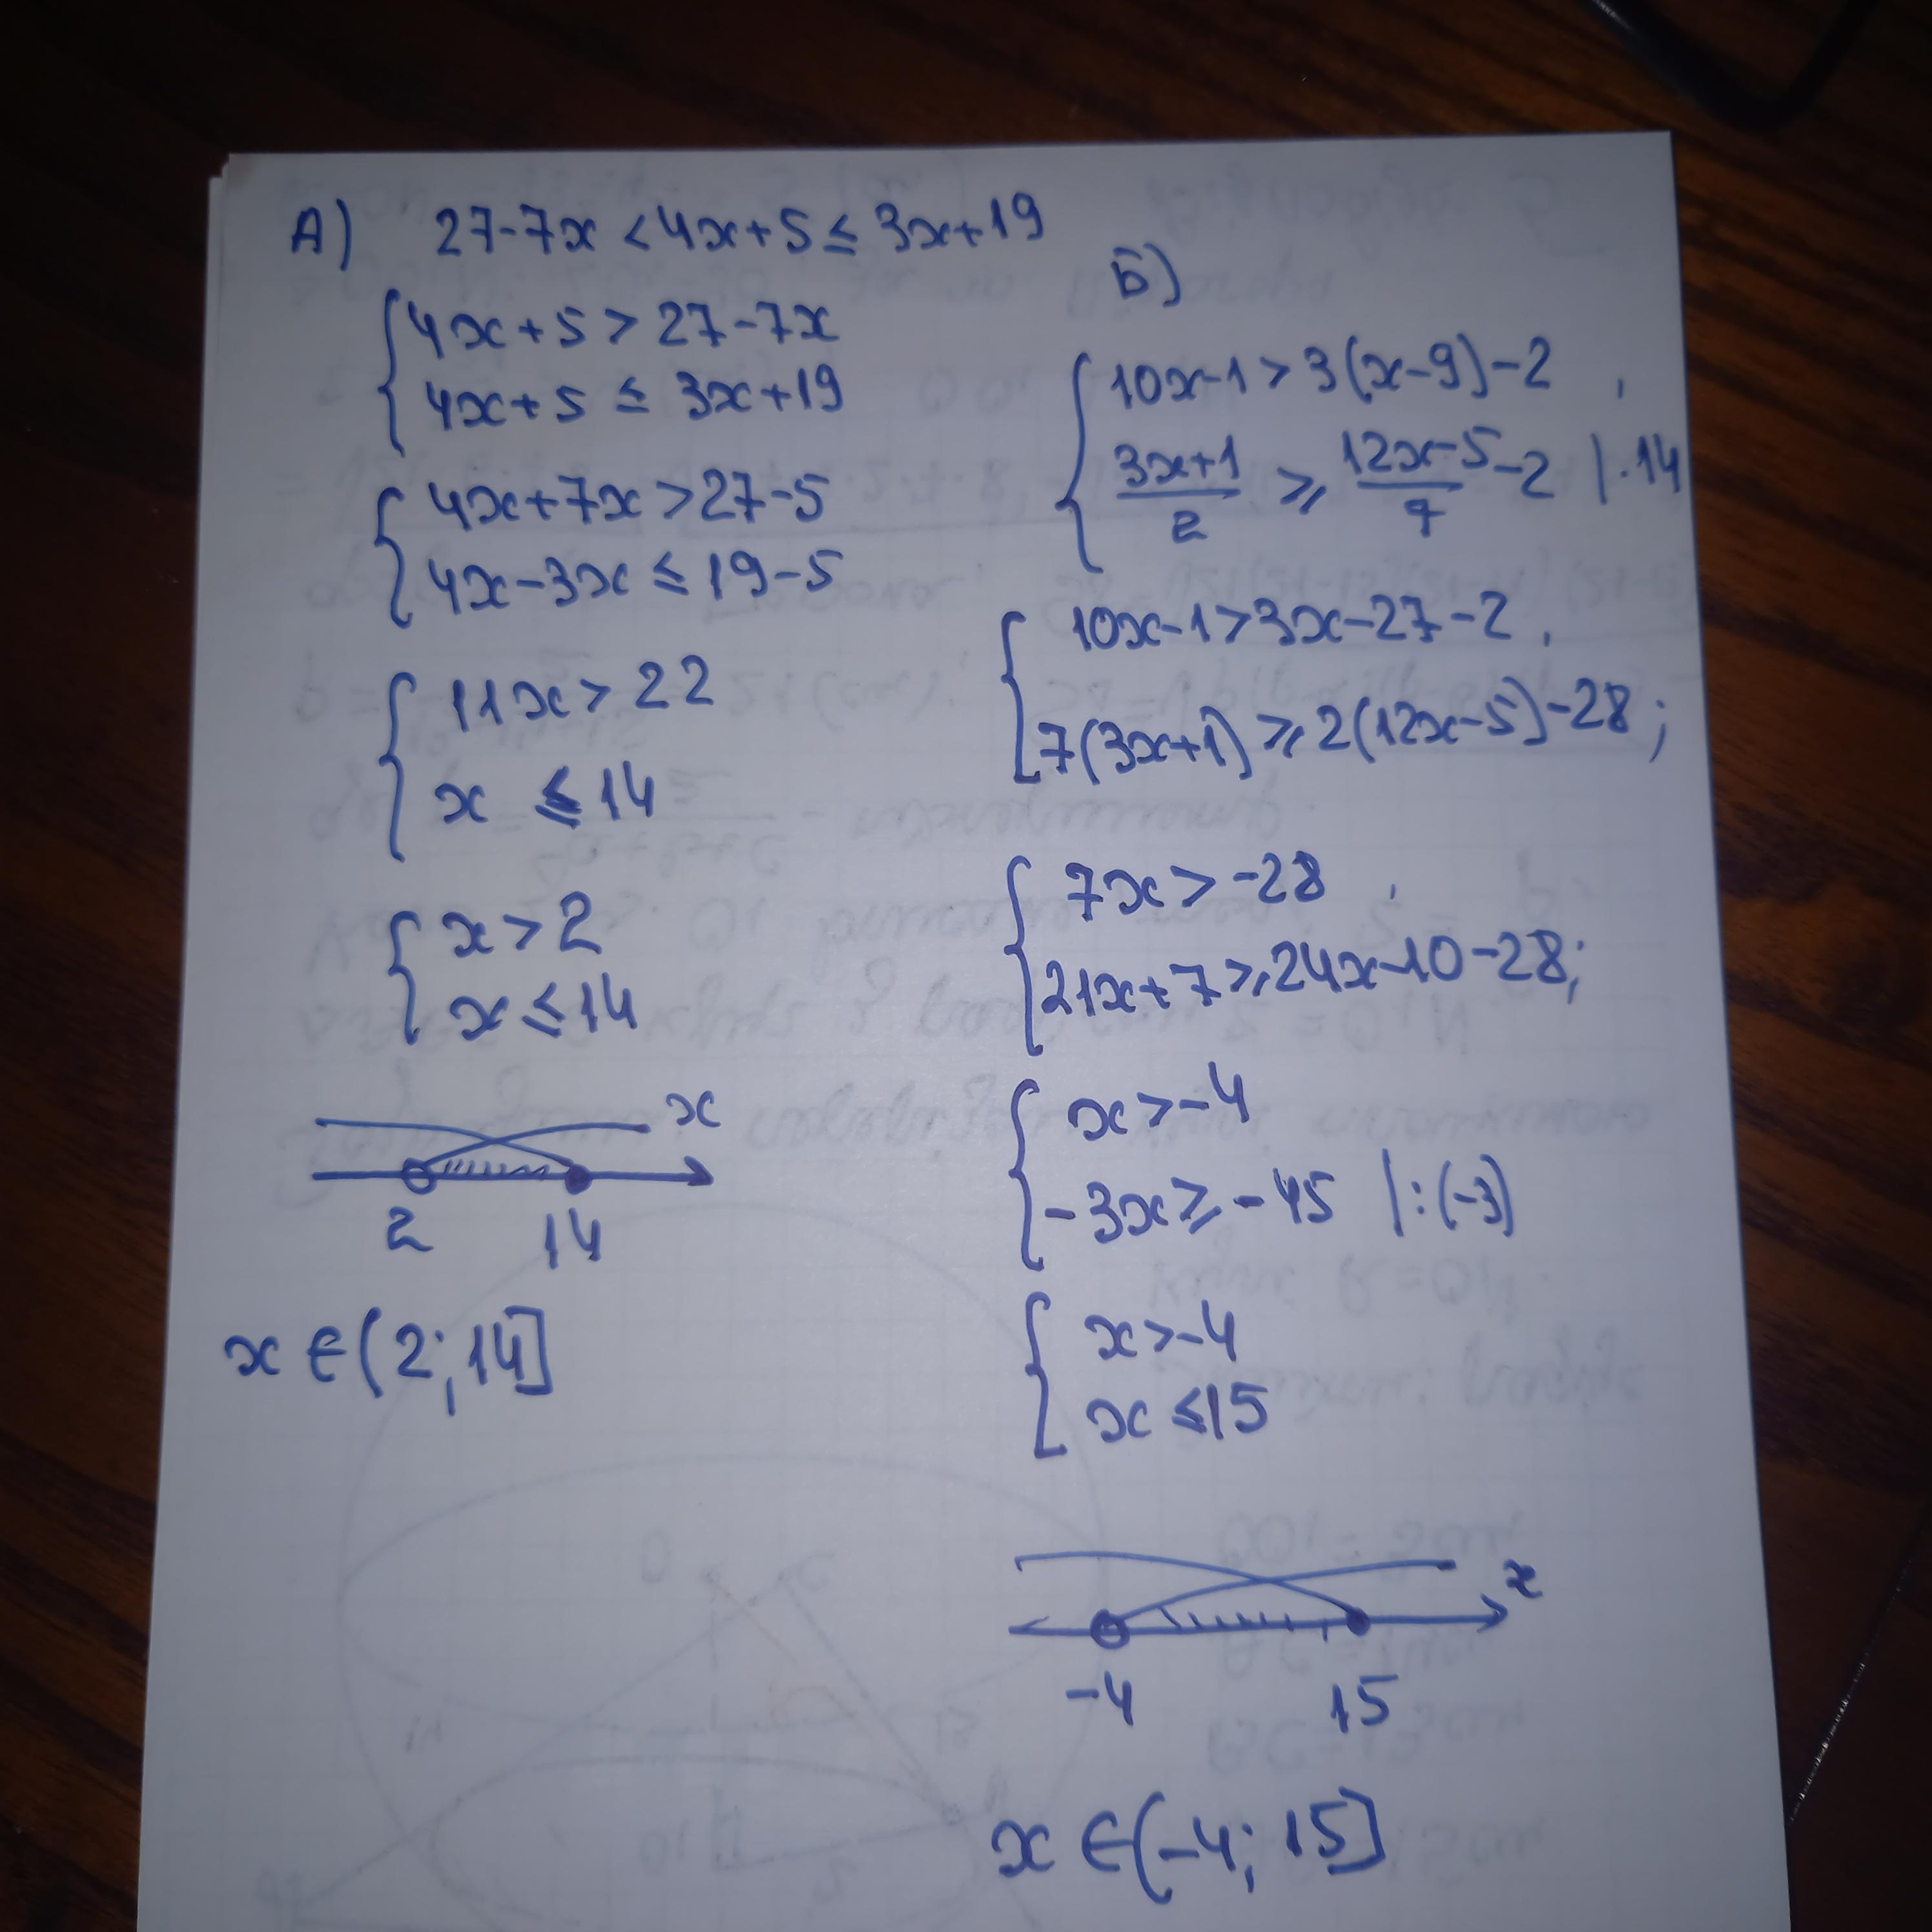 А) 27-7x < 4x+5 ≤ 3x+19
{ 4x+5 > 27-7x
4x+5 ≤ 3x+19
{ 4x+7x > 27-5
4x-3x ≤ 19-5
{ 11x > 22
x ≤ 14
{ x > 2
x ≤ 14
x
2 14
x ∈ (2; 14]
Б)
{ 10x-1 > 3(x-9)-2 ,
(3x+1)/2 ≥ (12x-5)/7 -2 |·14
{ 10x-1 > 3x-27-2 ,
7(3x+1) ≥ 2(12x-5)-28;
{ 7x > -28 ,
21x+7 ≥ 24x-10-28;
{ x > -4
-3x ≥ -45 |:(-3)
{ x > -4
x ≤ 15
x
-4 15
x ∈ (-4; 15]